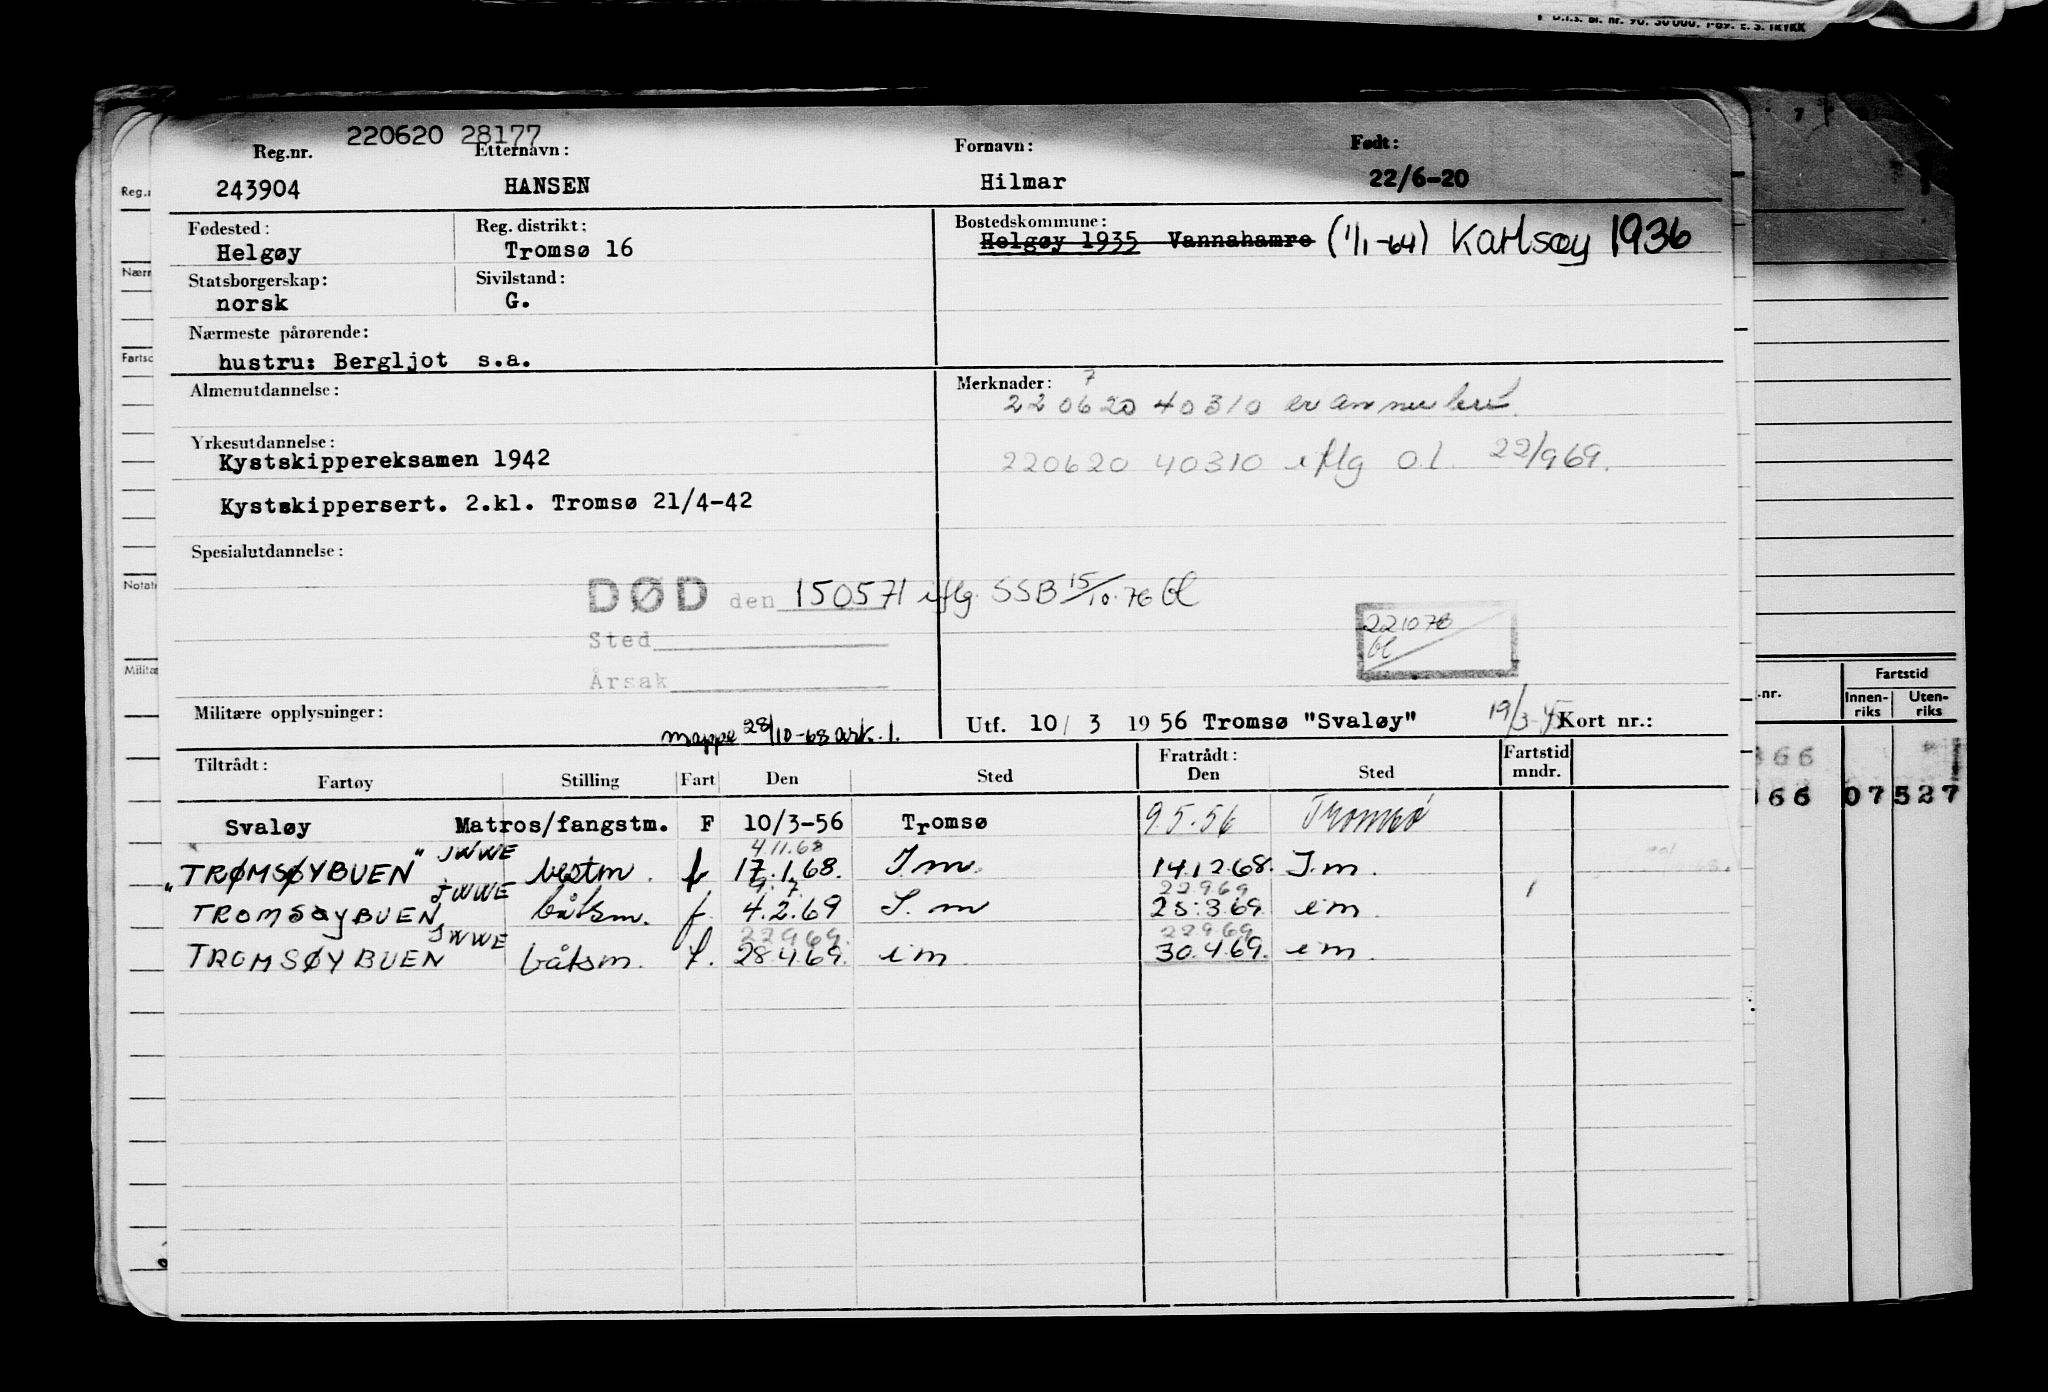 D.I.S. Bl. nr. 90. 30 000. 1-69. E. S. TRYKK
220620 28177
Reg.nr. Etternavn: Fornavn: Født:
243904 HANSEN Hilmar 22/6-20
Fødested: Reg. distrikt: Bostedskommune:
Helgøy Tromsø 16 Helgøy 1935 Vannahamre (1/1-64) Karlsøy 1936
Statsborgerskap: Sivilstand:
norsk G.
Nærmeste pårørende:
hustru: Bergljot s.a.
Almenutdannelse: Merknader: 7
220620 40310 er annullert.
Yrkesutdannelse:
Kystskippereksamen 1942 220620 40310 iflg O.l. 22/9 69.
Kystskippersert. 2.kl. Tromsø 21/4-42
Spesialutdannelse:
DØD den 150571 iflg. SSB 15/10.76 bl
Sted
221076
bl
Årsak
Militære opplysninger: mappe 28/10-68 ark. 1. Utf. 10/ 3 1956 Tromsø "Svaløy" 19/3-45 Kort nr.:
Tiltrådt: Fratrådt: Fartstid
Fartøy Stilling Fart Den Sted Den Sted mndr.
Svaløy Matros/fangstm. F 10/3-56 Tromsø 9.5.56 Tromsø
4.11.68
"TRØMSØYBUEN" JWWE bestm. f 17.1.68. I m. 14.12 68. I.m.
9. 7. 22969
TROMSØYBUEN JWWE båtsm. f. 4.2.69 I. m 25.3 69. i m. 1
22969. 22969
TROMSØYBUEN JWWE båtsm. f. 28.4.69. i m 30.4.69. i m.
Reg.n
Nærm
Fartso
Notate
Militæ
7
.nr. Fartstid
Innen-riks Uten-riks
366
166 07527